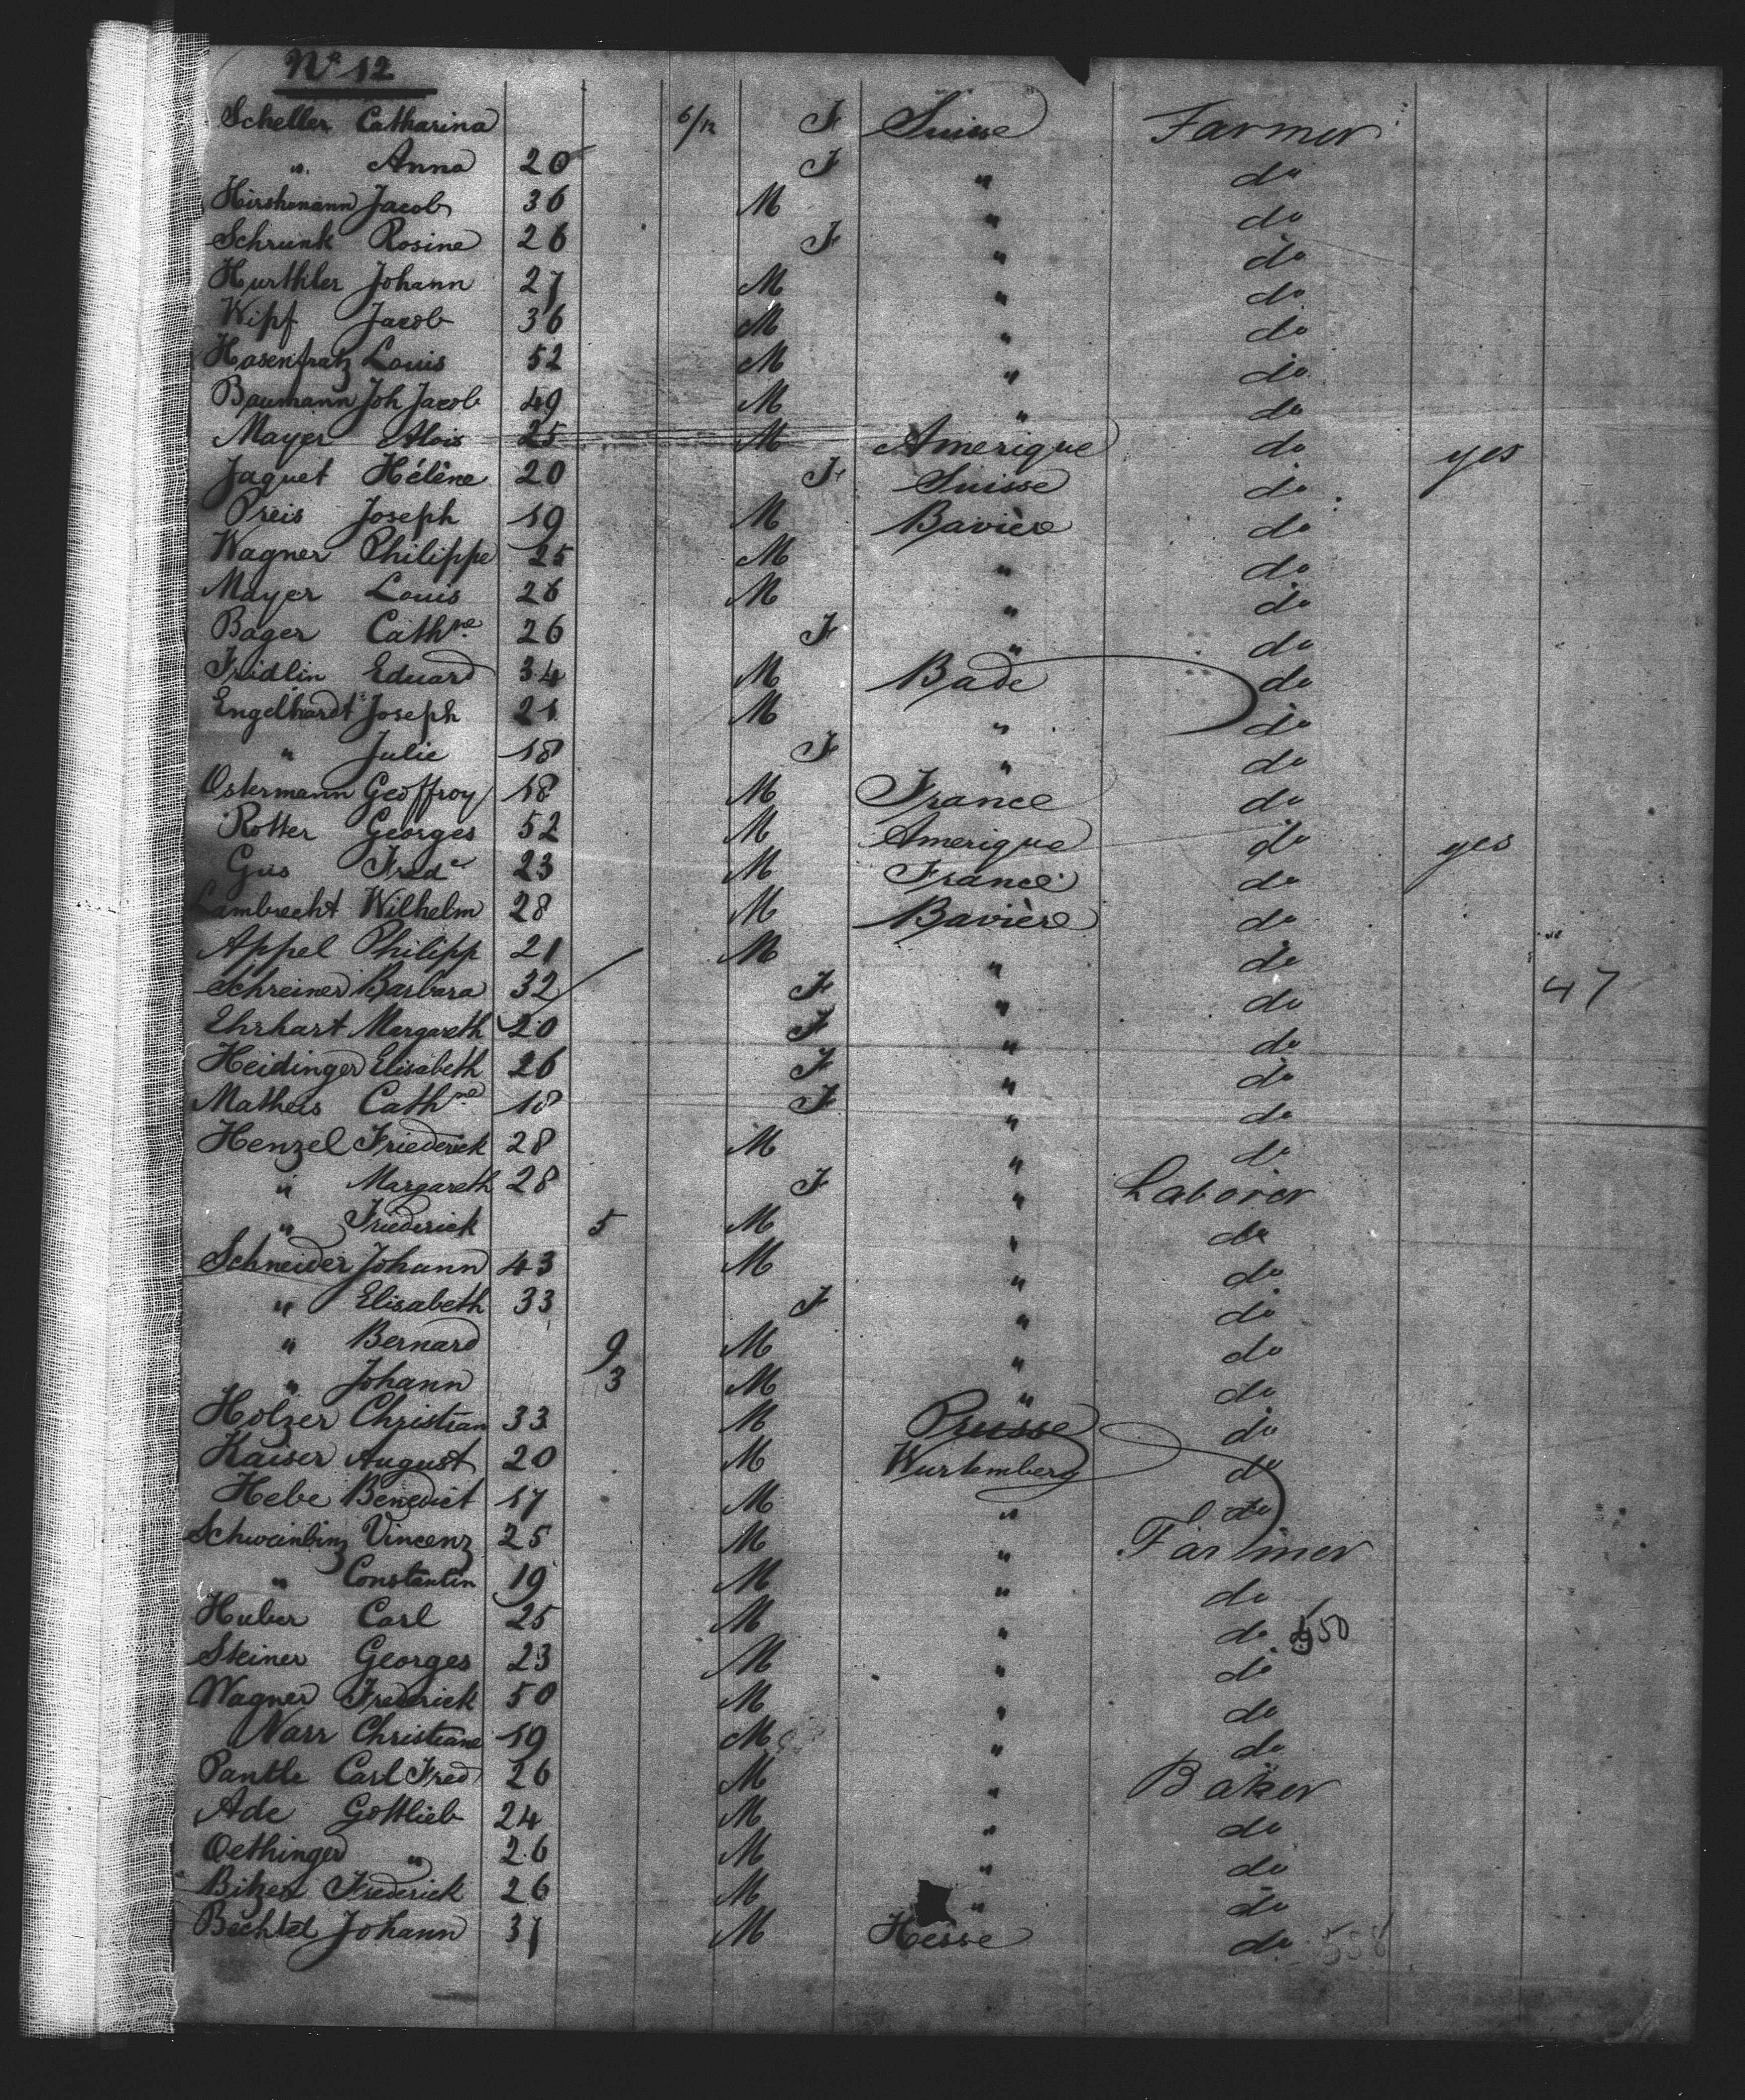 Nº 12
Scheller Catharina 6/12 F Suisse Farmer
" Anna 20 F " do
Hirshmann Jacob 36 M " do
Schrunk Rosine 26 F " do
Hurthler Johann 27 M " do
Wipf Jacob 36 M " do
Hasenfratz Louis 52 M " do
Baumann Joh Jacob 49 M " do
Mayer Alois 25 M Amerique do yes
Jaquet Hélène 20 F Suisse do
Preis Joseph 19 M Bavière do
Wagner Philippe 25 M " do
Mayer Louis 26 M " do
Bager Cathne 26 F " do
Fridlin Eduard 34 M Bade do
Engelhardt Joseph 21 M " do
" Julie 18 F " do
Ostermann Geoffroy 18 M France do
Rotter Georges 52 M Amerique do yes
Gus Fredc 23 M France do
Lambrecht Wilhelm 28 M Bavière do
Appel Philipp 21 M " do
Schreiner Barbara 32 F " do 47
Ehrhart Margareth 20 F " do
Heidinger Elisabeth 26 F " do
Matheis Cathne 18 F " do
Henzel Friederick 28 M " do
" Margareth 28 F " Laborer
" Friederick 5 M " do
Schneider Johann 43 M " do
" Elisabeth 33 F " do
" Bernard 9 M " do
" Johann 3 M " do
Holzer Christian 33 M Prusse do
Kaiser August 20 M Wurtemberg do
Hebe Benedict 17 M " do
Schwainbinz Vincenz 25 M " Farmer
" Constantin 19 M " do
Huber Carl 25 M " do 550
Steiner Georges 23 M " do
Wagner Frederick 50 M " do
Narr Christiane 19 M " do
Pantle Carl Fred 26 M " Baker
Ade Gottlieb 24 M " do
Oethinger " 26 M " do
Bitzer Frederick 26 M " do
Bechtel Johann 31 M Hesse do 558